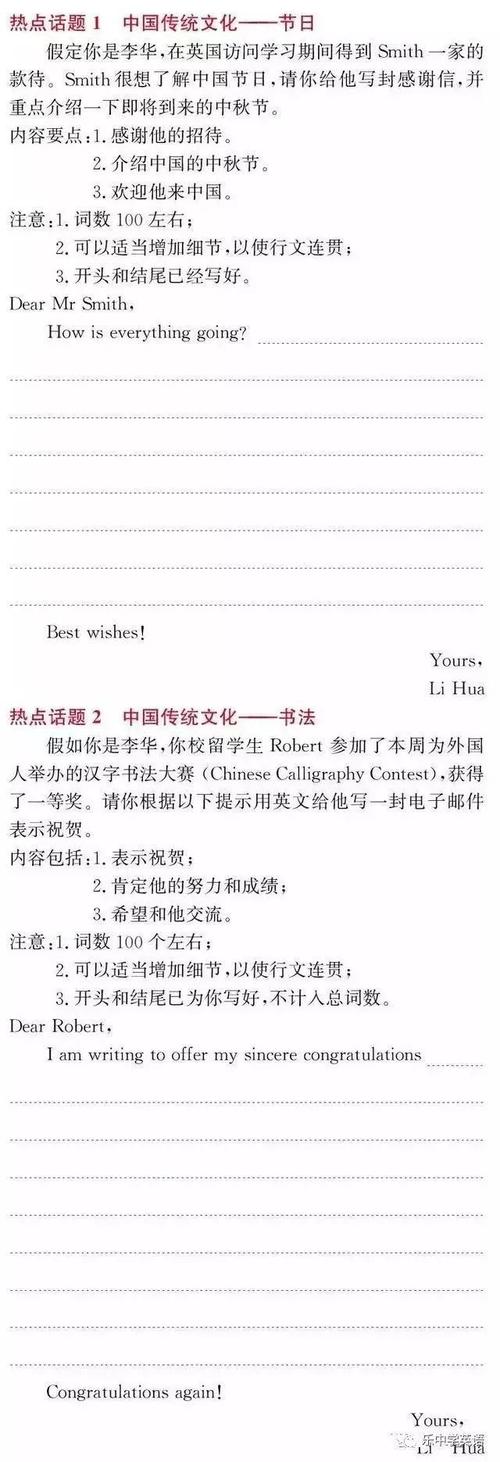 热点话题1 中国传统文化——节日
假定你是李华,在英国访问学习期间得到 Smith 一家的
款待。Smith 很想了解中国节日,请你给他写封感谢信,并
重点介绍一下即将到来的中秋节。
内容要点:1. 感谢他的招待。
2. 介绍中国的中秋节。
3. 欢迎他来中国。
注意:1. 词数 100 左右;
2. 可以适当增加细节,以使行文连贯;
3. 开头和结尾已经写好。
Dear Mr Smith,
How is everything going?
Best wishes!
Yours,
Li Hua
热点话题2 中国传统文化——书法
假如你是李华,你校留学生 Robert 参加了本周为外国
人举办的汉字书法大赛 (Chinese Calligraphy Contest),获得
了一等奖。请你根据以下提示用英文给他写一封电子邮件
表示祝贺。
内容包括:1. 表示祝贺;
2. 肯定他的努力和成绩;
3. 希望和他交流。
注意:1. 词数 100 个左右;
2. 可以适当增加细节,以使行文连贯;
3. 开头和结尾已为你写好,不计入总词数。
Dear Robert,
I am writing to offer my sincere congratulations
Congratulations again!
Yours,
乐中学英语
Li Hua